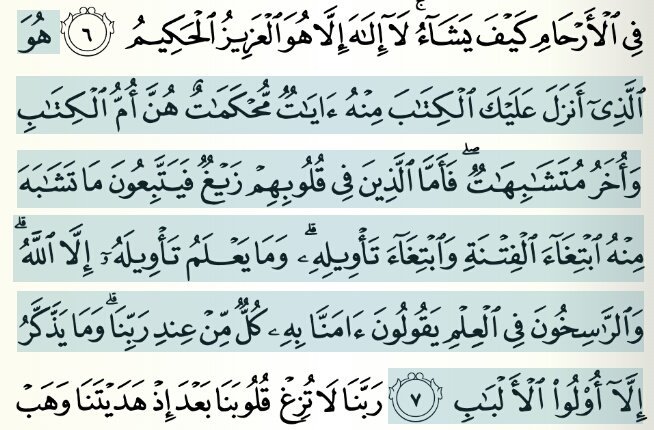 فِي ٱلْأَرْحَامِ كَيْفَ يَشَآءُ ۚ لَآ إِلَٰهَ إِلَّا هُوَ ٱلْعَزِيزُ ٱلْحَكِيمُ ٦ هُوَ
ٱلَّذِىٓ أَنزَلَ عَلَيْكَ ٱلْكِتَٰبَ مِنْهُ ءَايَٰتٌ مُّحْكَمَٰتٌ هُنَّ أُمُّ ٱلْكِتَٰبِ
وَأُخَرُ مُتَشَٰبِهَٰتٌ ۖ فَأَمَّا ٱلَّذِينَ فِي قُلُوبِهِمْ زَيْغٌ فَيَتَّبِعُونَ مَا تَشَٰبَهَ
مِنْهُ ٱبْتِغَآءَ ٱلْفِتْنَةِ وَٱبْتِغَآءَ تَأْوِيلِهِۦ ۗ وَمَا يَعْلَمُ تَأْوِيلَهُۥٓ إِلَّا ٱللَّهُ ۗ
وَٱلرَّٰسِخُونَ فِي ٱلْعِلْمِ يَقُولُونَ ءَامَنَّا بِهِۦ كُلٌّ مِّنْ عِندِ رَبِّنَا ۗ وَمَا يَذَّكَّرُ
إِلَّآ أُو۟لُوا۟ ٱلْأَلْبَٰبِ ٧ رَبَّنَا لَا تُزِغْ قُلُوبَنَا بَعْدَ إِذْ هَدَيْتَنَا وَهَبْ